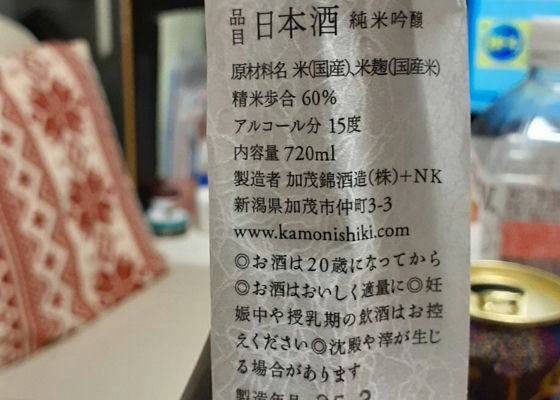 品目 日本酒 純米吟醸
原材料名 米(国産)、米麹(国産米)
精米歩合 60%
アルコール分 15度
内容量 720ml
製造者 加茂錦酒造(株)+NK
新潟県加茂市仲町3-3
www.kamonishiki.com
◎お酒は20歳になってから
◎お酒はおいしく適量に◎妊
娠中や授乳期の飲酒はお控
えください◎沈殿や滓が生じ
る場合があります
製造年月